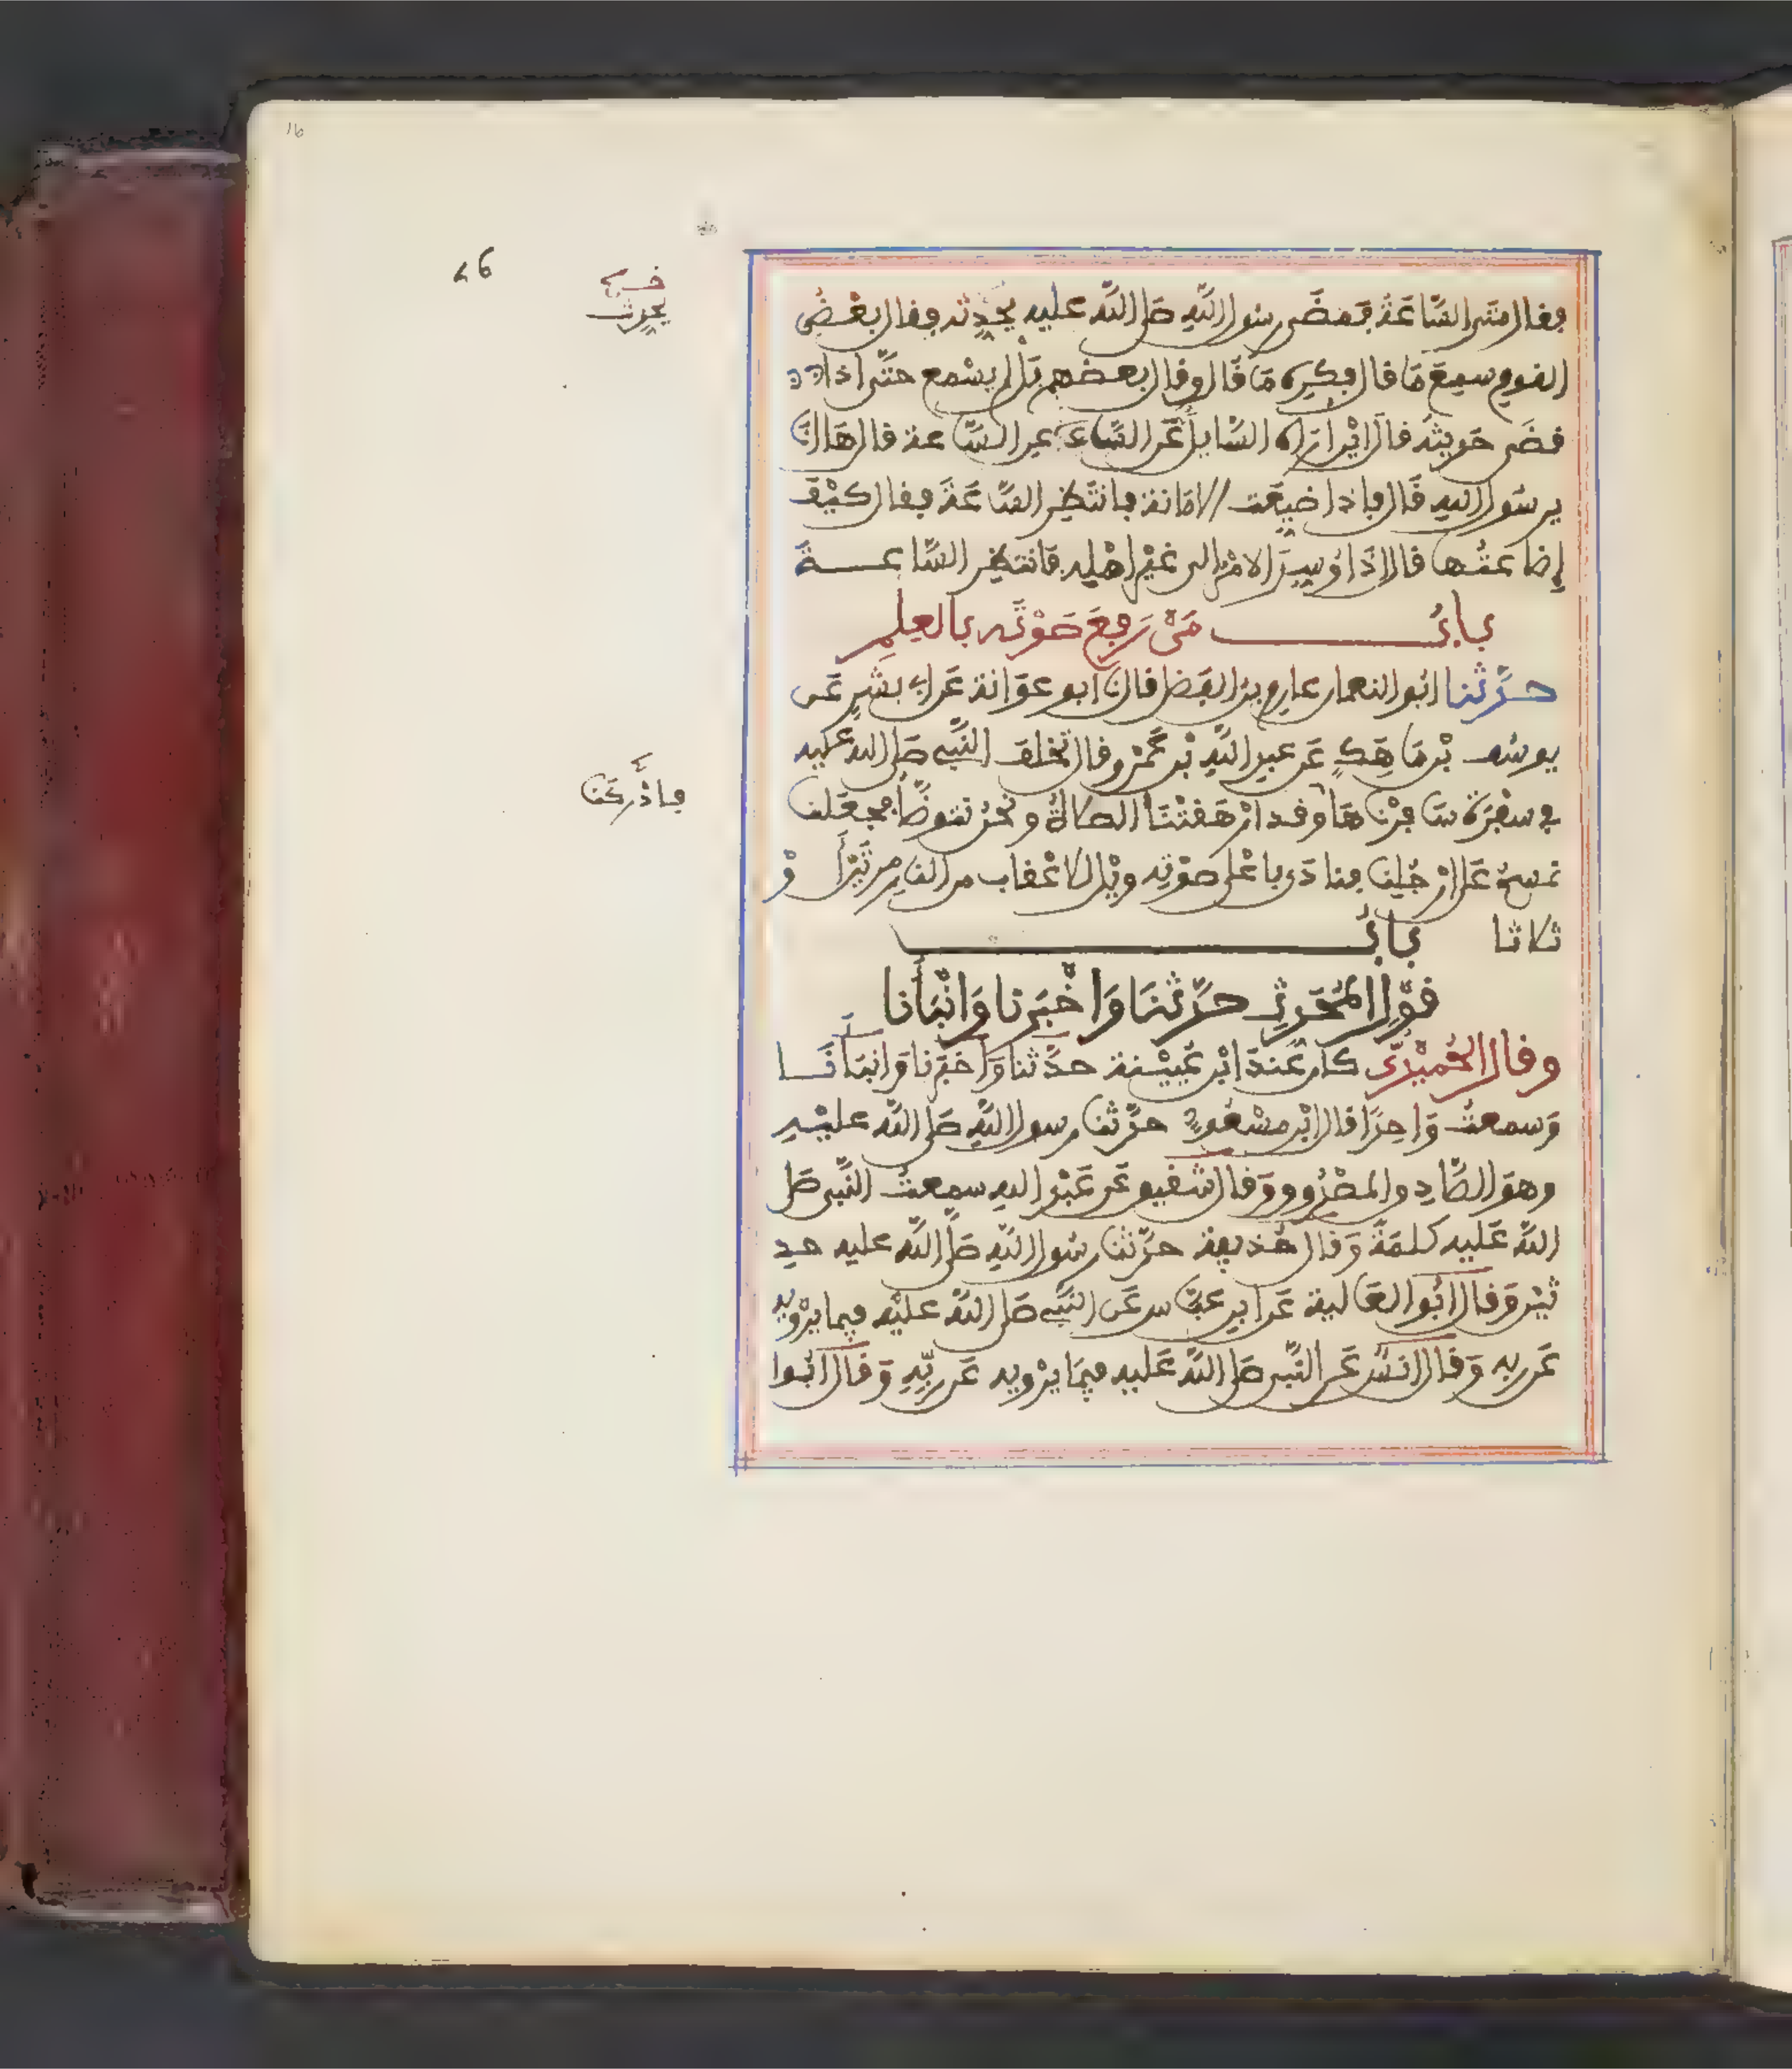 فقال متى السّاعَةُ فمَضَى رسول اللّهِ صَلى اللّه عليه يحدِّثه فقال بعْضُ
القوم سمِعَ مَا قال فكرِه مَا قَال وقال بعضهم بَل لم يسْمع حتّى اذا
قضَى حَديثَهُ قال ايْن اراه السّايل عَن السّاعة قال هَا انَا
يرسُول الله قَال فاذا ضيّعَت الامانة فانتَظِر السّاعَةَ فقال كيْفَ
إضاعَتُها قال اذَا وُسِدَ الامْر الى غيْر اهْله فانتظِر السَّاعــةَ
بـابُ مَنْ رَفعَ صَوْتَه بالعِلمِ
حدَّثنا ابُو النعمان عارم بنُ الفَضل قال نَا ابو عوَانة عَن ابي بشْرٍ عَن
يوسُف بْن مَاهَكٍ عَن عبد اللّهِ بْن عَمْرو قال تخلف النَّبي صَلى الله عليه
في سفْرَةٍ سَافرْناهَا وقد ارْهَقتْنَا الصلاةُ ونحْنُ نتوضّأ فجعَلنا
نمسحُ عَلى ارْجُلِنا فنادَى باعْلى صَوْتِه ويْل للاعْقاب من النار مرتيْن أوْ
ثلاثا بـابُ
قوْلِ المُحَدثِ حدَّثنَا وَأخْبَرنا وَأنْبَأنا
وقال الحُميْدِيُّ كان عندَ ابْن عُييْنة حدَّثنا وَأخبَرنا وَانبَأنَــا
وَسمعتُ وَاحِدًا قال ابْن مسْعُود حدَّثنا رسول اللّهِ صَلى اللّه عليْــهِ
وهوَ الصَّادِق المصْدُوق وقَال شقيق عَن عَبْد الله سمِعتُ النَّبي صَلى
اللّه عَليه كلمَةً وَقال حُذيفة حدَّثنا رسُول اللّهِ صَلى اللّه عليه حدِ
يثيْن وَقال ابُو العَالية عَن ابن عبّاس عَن النّبي صَلى اللّه عليْه فيما يرْويه
عَن ربه وَقال انسٌ عَن النَّبي صَلى اللّه عَليه فيمَا يرْويه عَن ربّهِ وَقَال ابُوا
16
26
يحدث
فأدْركنا